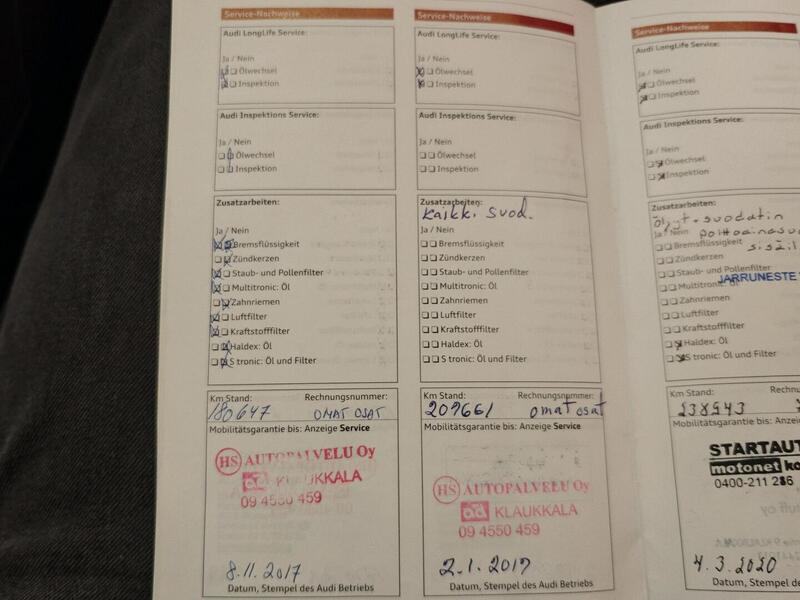 Service-Nachweise
Audi LongLife Service:
Ja / Nein
Ölwechsel
Inspektion
Audi Inspektions Service:
Ja / Nein
Ölwechsel
Inspektion
Zusatzarbeiten:
Ja / Nein
Bremsflüssigkeit
Zündkerzen
Staub- und Pollenfilter
Multitronic: Öl
Zahnriemen
Luftfilter
Kraftstofffilter
Haldex: Öl
S tronic: Öl und Filter
Km Stand: Rechnungsnummer:
180647 OMAT OSAT
Mobilitätsgarantie bis: Anzeige Service
HS AUTOPALVELU Oy
ad KLAUKKALA
09 4550 459
8.11.2017
Datum, Stempel des Audi Betriebs
Service-Nachweise
Audi LongLife Service:
Ja / Nein
Ölwechsel
Inspektion
Audi Inspektions Service:
Ja / Nein
Ölwechsel
Inspektion
Zusatzarbeiten:
Kaikki suod.
Bremsflüssigkeit
Zündkerzen
Staub- und Pollenfilter
Multitronic: Öl
Zahnriemen
Luftfilter
Kraftstofffilter
Haldex: Öl
S tronic: Öl und Filter
Km Stand: Rechnungsnummer:
209661 omat osat
Mobilitätsgarantie bis: Anzeige Service
HS AUTOPALVELU Oy
ad KLAUKKALA
09 4550 459
Datum, Stempel des Audi Betriebs
Service-Nachweise
Audi LongLife Service:
Ja / Nein
Ölwechsel
Inspektion
Audi Inspektions Service:
Ja / Nein
Ölwechsel
Inspektion
Zusatzarbeiten:
Öljyt + suodatin
Ja / Nein
Bremsflüssigkeit
Zündkerzen
Staub- und Pollenfilter
JARRUNESTE
Multitronic: Öl
Zahnriemen
Luftfilter
Kraftstofffilter
Haldex: Öl
S tronic: Öl und Filter
Km Stand:
238543
Mobilitätsgarantie bis: Anzeige
STARTAUT
motonet ko
0400-211 286
4.3.2020
Datum, Stempel des Audi